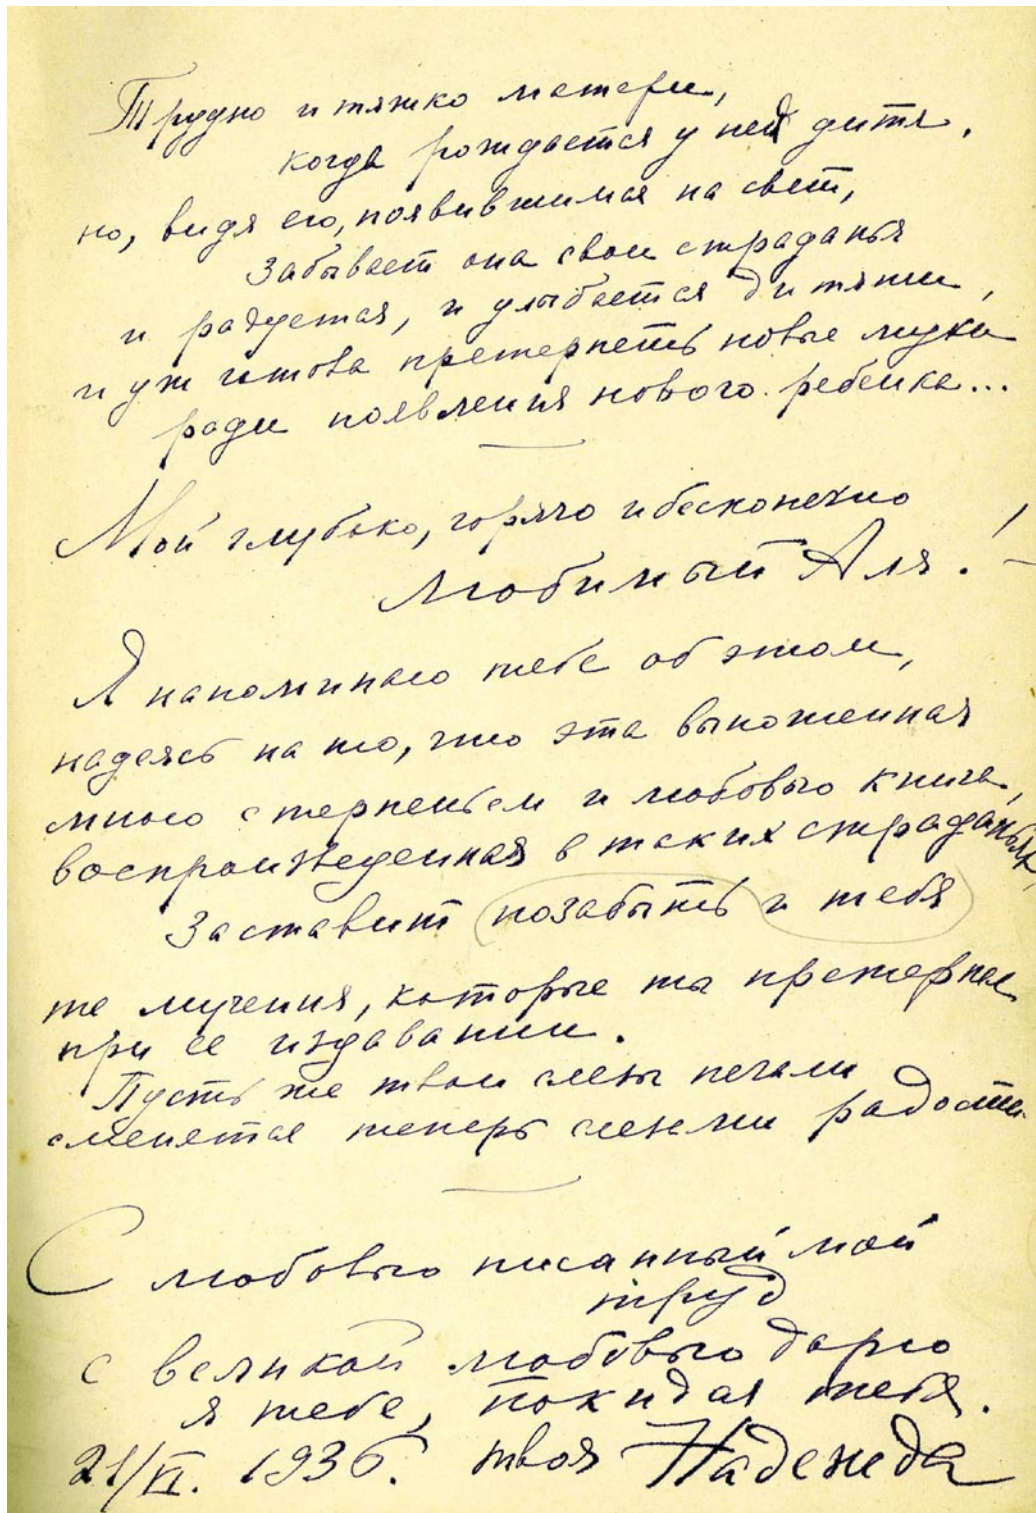 Трудно и тяжко матери,
когда рождается у ней дитя,
но, видя его, появившимся на свет,
забывает она свои страданья
и радуется, и улыбается дитяти,
и уж готова претерпеть новые муки
ради появления нового ребенка...
Мой глубоко, горячо и бесконечно
любимый Аля! –
Я напоминаю тебе об этом,
надеясь на то, что эта выношенная
мною с терпеньем и любовью книга,
воспроизведенная в таких страданьях,
заставит позабыть и тебя
те мучения, которые ты претерпел
при ее издавании.
Пусть же твои слезы печали
сменятся теперь слезами радости
С любовью писанный мой
труд
с великой любовью дарю
я тебе, покидая тебя.
21/VI. 1936. твоя Надежда